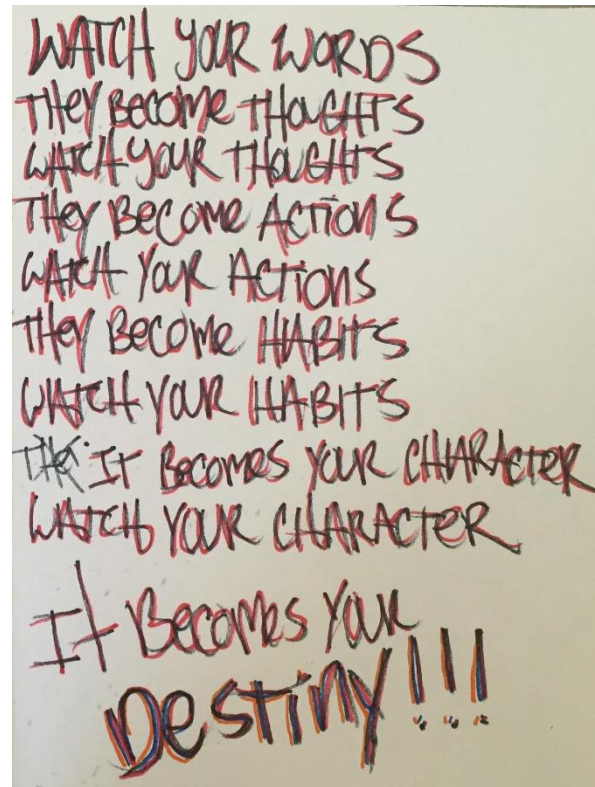 WATCH YOUR WORDS
THEY BECOME THOUGHTS
WATCH YOUR THOUGHTS
THEY BECOME ACTIONS
WATCH YOUR ACTIONS
THEY BECOME HABITS
WATCH YOUR HABITS
IT BECOMES YOUR CHARACTER
WATCH YOUR CHARACTER
It Becomes Your
DESTINY!!!